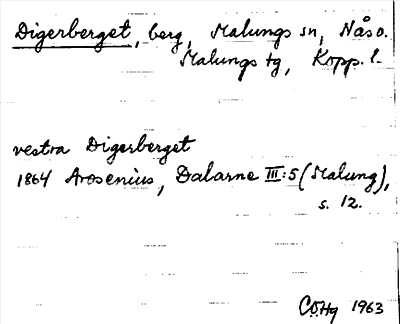 Digerberget, berg, Malungs sn, Nås o.
Malungs tg, Kopp. l.
vestra Digerberget
1864 Arosenius, Dalarne III:5 (Malung),
s. 12.
C.Ö.Hg 1963